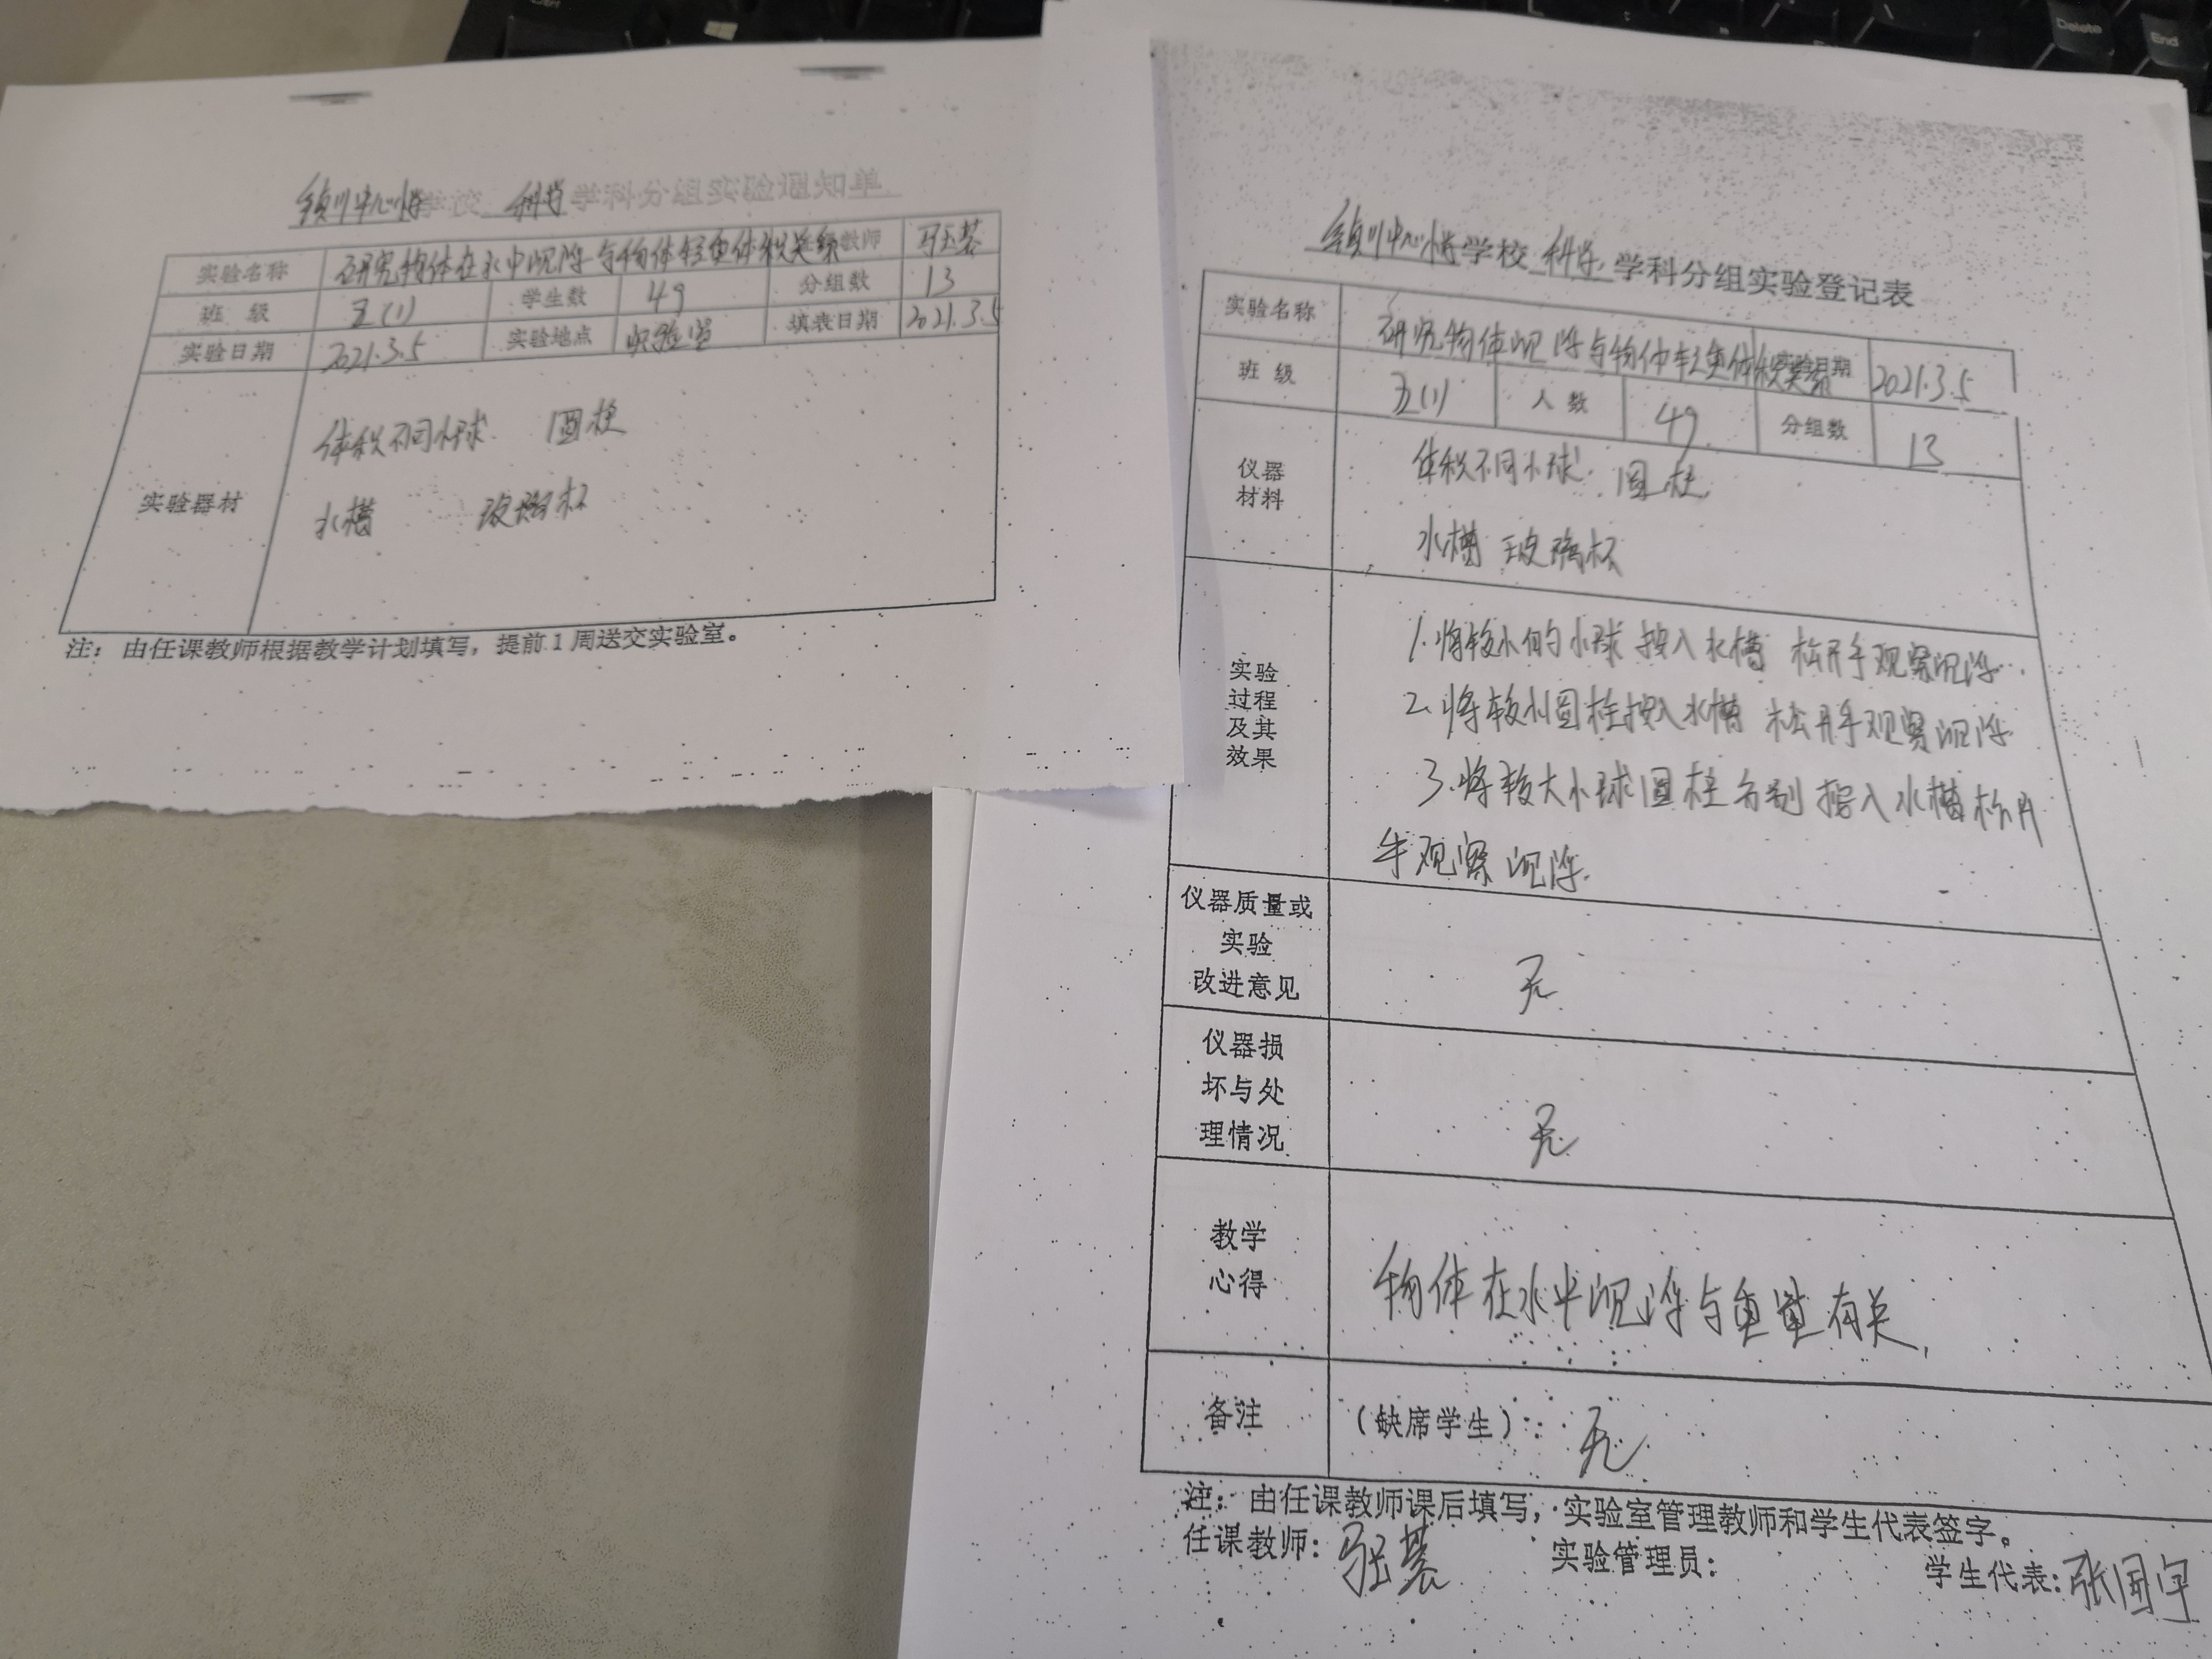 镇川中心小学学校 科学 学科分组实验通知单
实验名称 研究物体在水中沉浮与物体轻重体积关系 教师
班 级 五(1) 学生数 49 分组数 13
实验日期 2021.3.5 实验地点 实验室 填表日期 2021.3.5
实验器材
体积不同小球 圆柱
水槽 玻璃杯
注：由任课教师根据教学计划填写，提前1周送交实验室。
镇川中心小学学校 科学 学科分组实验登记表
实验名称 研究物体沉浮与物体轻重体积关系 实验日期 2021.3.5
班 级 五(1) 人 数 49 分组数 13
仪器
材料
体积不同小球 圆柱
水槽 玻璃杯
实验
过程
及其
效果
1.将较小的小球按入水槽 松开手观察沉浮.
2.将较小圆柱按入水槽 松开手观察沉浮
3.将较大小球圆柱分别按入水槽松开
手观察沉浮.
仪器质量或
实验
改进意见
无
仪器损
坏与处
理情况
无
教学
心得
物体在水中沉浮与重量有关.
备注 （缺席学生）： 无
注：由任课教师课后填写，实验室管理教师和学生代表签字。
任课教师： 实验管理员： 学生代表：张国宇
Delete
End